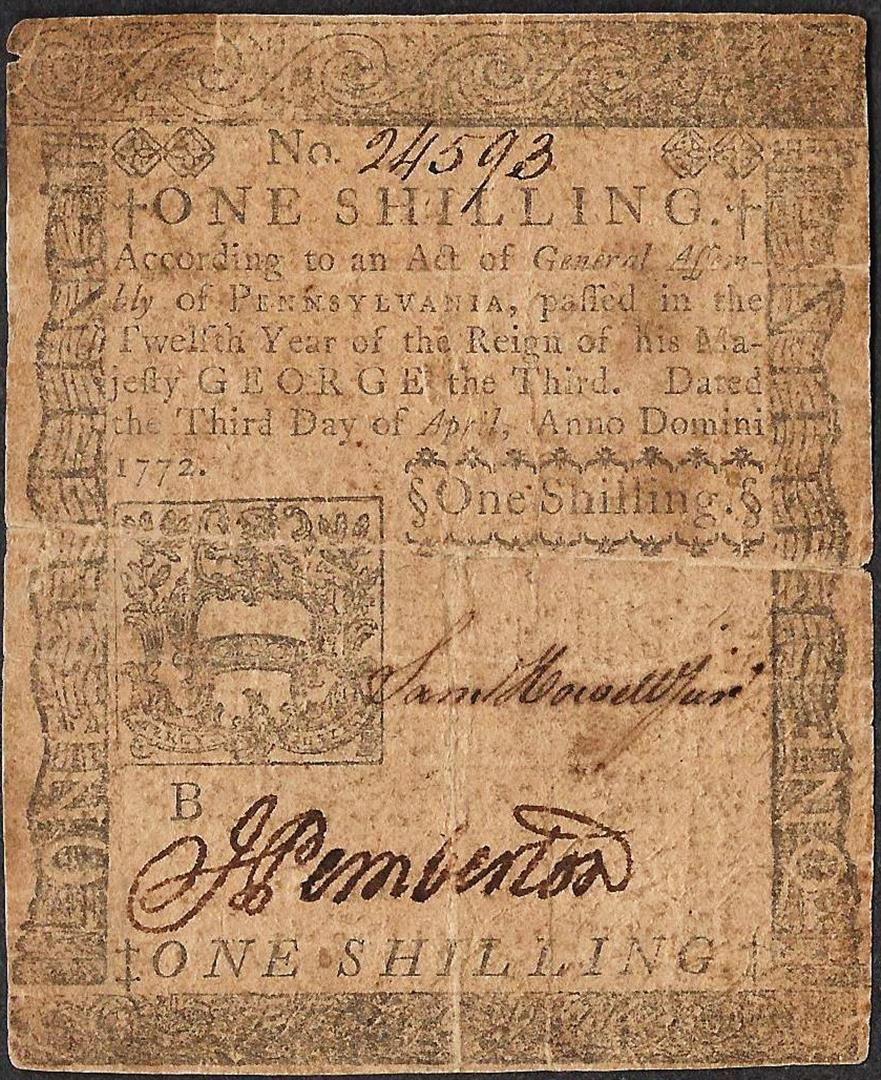 No. 24593
†ONE SHILLING.†
According to an Act of General Aſſem-
bly of PENNSYLVANIA, paſſed in the
Twelfth Year of the Reign of his Ma-
jeſty GEORGE the Third. Dated
the Third Day of April, Anno Domini
1772.
§One Shilling.§
Sam Howell Jun
B
J Pemberton
‡ONE SHILLING‡